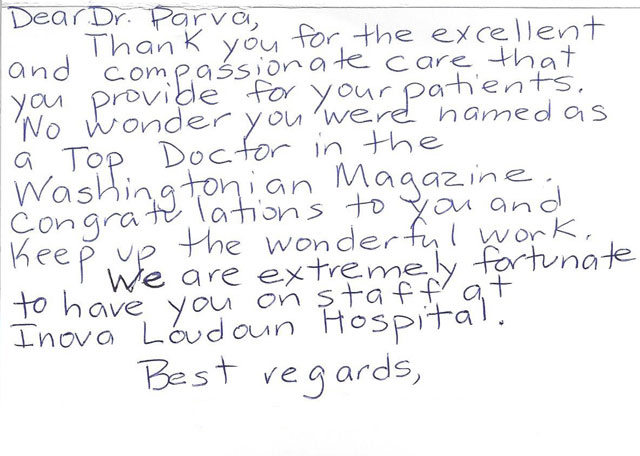 Dear Dr. Parva,
Thank you for the excellent
and compassionate care that
you provide for your patients.
No wonder you were named as
a Top Doctor in the
Washingtonian Magazine.
Congratulations to you and
Keep up the wonderful work.
We are extremely fortunate
to have you on staff at
Inova Loudoun Hospital.
Best regards,